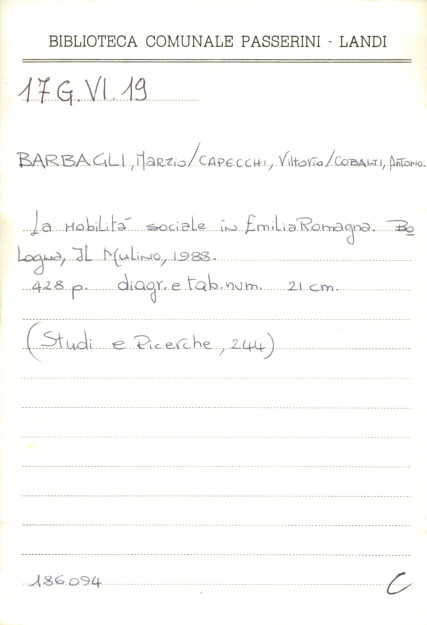 BIBLIOTECA COMUNALE PASSERINI - LANDI
17 G.VI.19
BARBAGLI, Marzio/CAPECCHI, Vittorio/COBALTI, Antonio.
La mobilità sociale in EmiliaRomagna. Bo
logna, Il Mulino, 1988.
428 p. diagr. e tab. num. 21 cm.
(Studi e Ricerche, 244)
186094 C